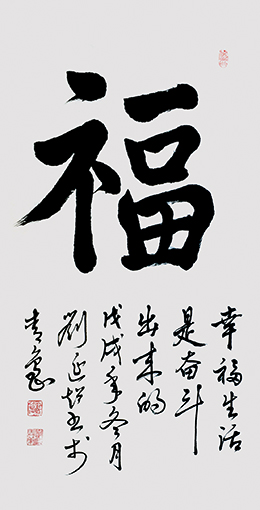 福
幸福生活
是奋斗
出来的
戊戌年冬月
刘延